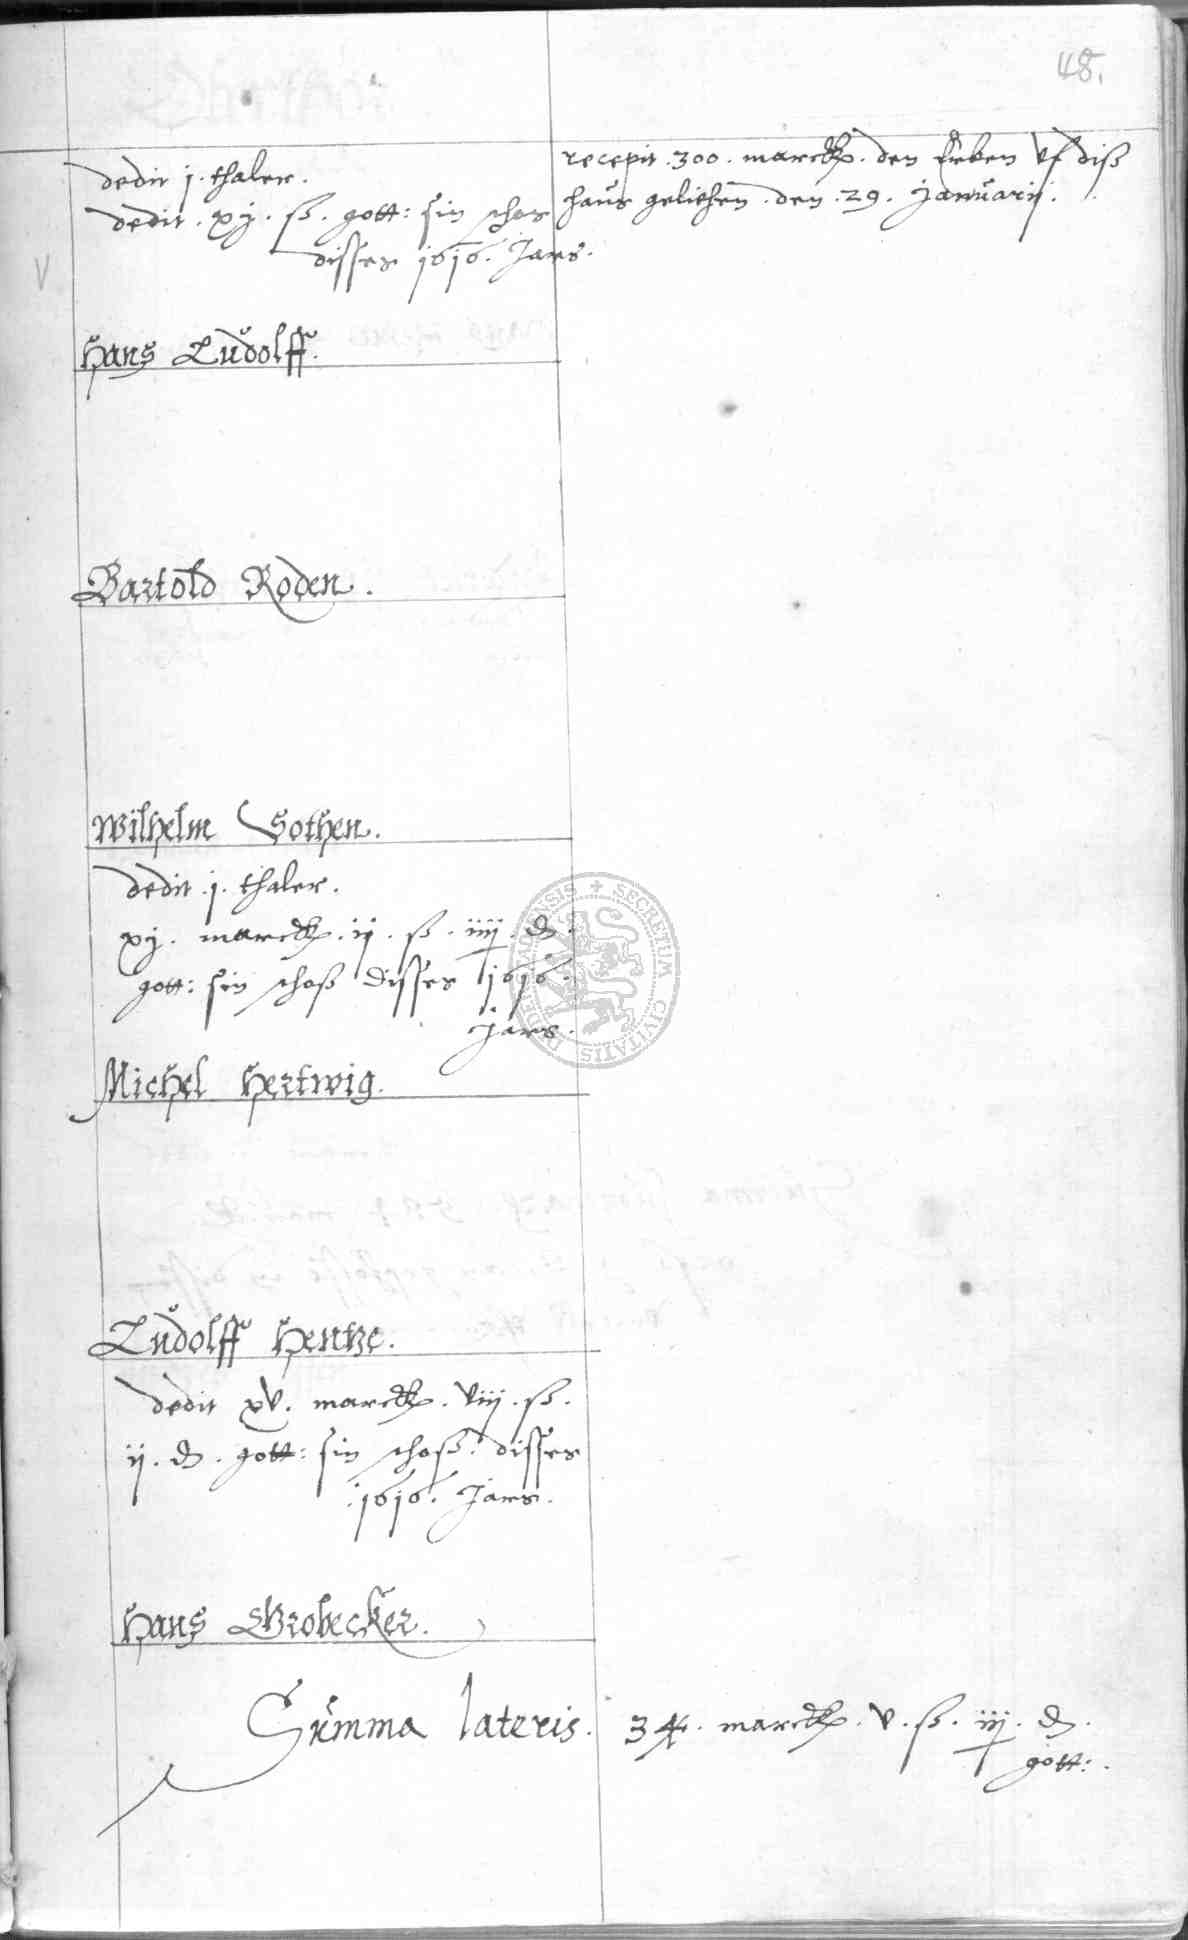 48.
dedit j. thaler.
dedit . xj . ß . gott: sin schos
disses 1616. Jars.
recepit . 300 . marck . den Erben uf diß
haus geliehen . den . 29 . Januarij .
V
Hans Ludolff.
Bartold Roden .
Wilhelm Gothen.
dedit . j . thaler .
xj . marck . ij . ß . iiij . ₰ .
gott: sin schoß disses 1616.
Jars.
Michel Hertwig.
Ludolff Hentze.
dedit xv. marck . viij . ß .
ij . ₰ . gott: sin schoß . disses
1616 . Jars .
Hans Grobecker.
Summa lateris. 34 . marck . v . ß . iij . ₰ .
gott: .
SECRETUM CIVITATIS